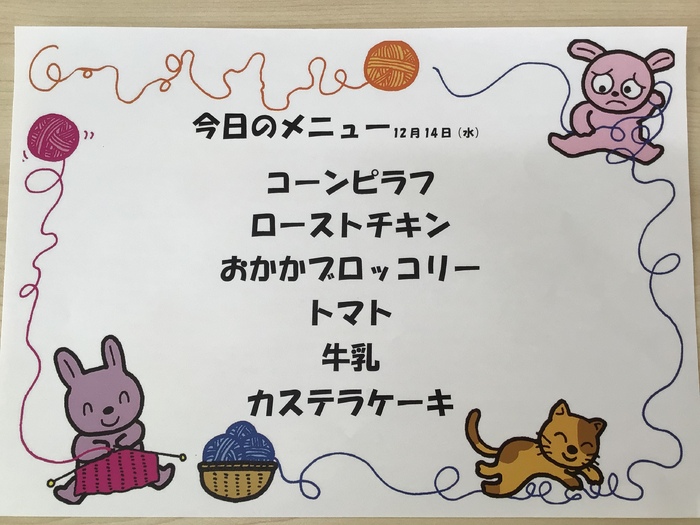 今日のメニュー12月14日（水）
コーンピラフ
ローストチキン
おかかブロッコリー
トマト
牛乳
カステラケーキ